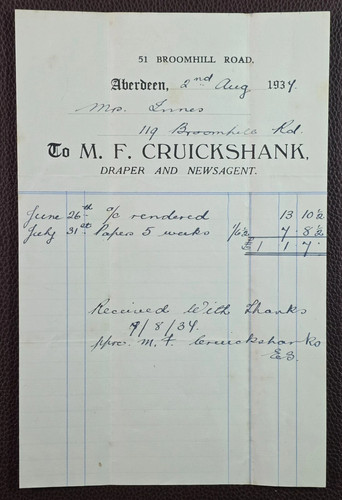 51 BROOMHILL ROAD,
Aberdeen, 2nd Aug 1934.
Mrs. Innes
119 Broomhill Rd.
To M. F. CRUICKSHANK,
DRAPER AND NEWSAGENT.
June 26th a/c rendered 13 10½
July 31st Papers 5 weeks 1/6½ 7 . 8½
1 1 7
Received With Thanks
9/8/34.
pro. M. F. Cruickshanks